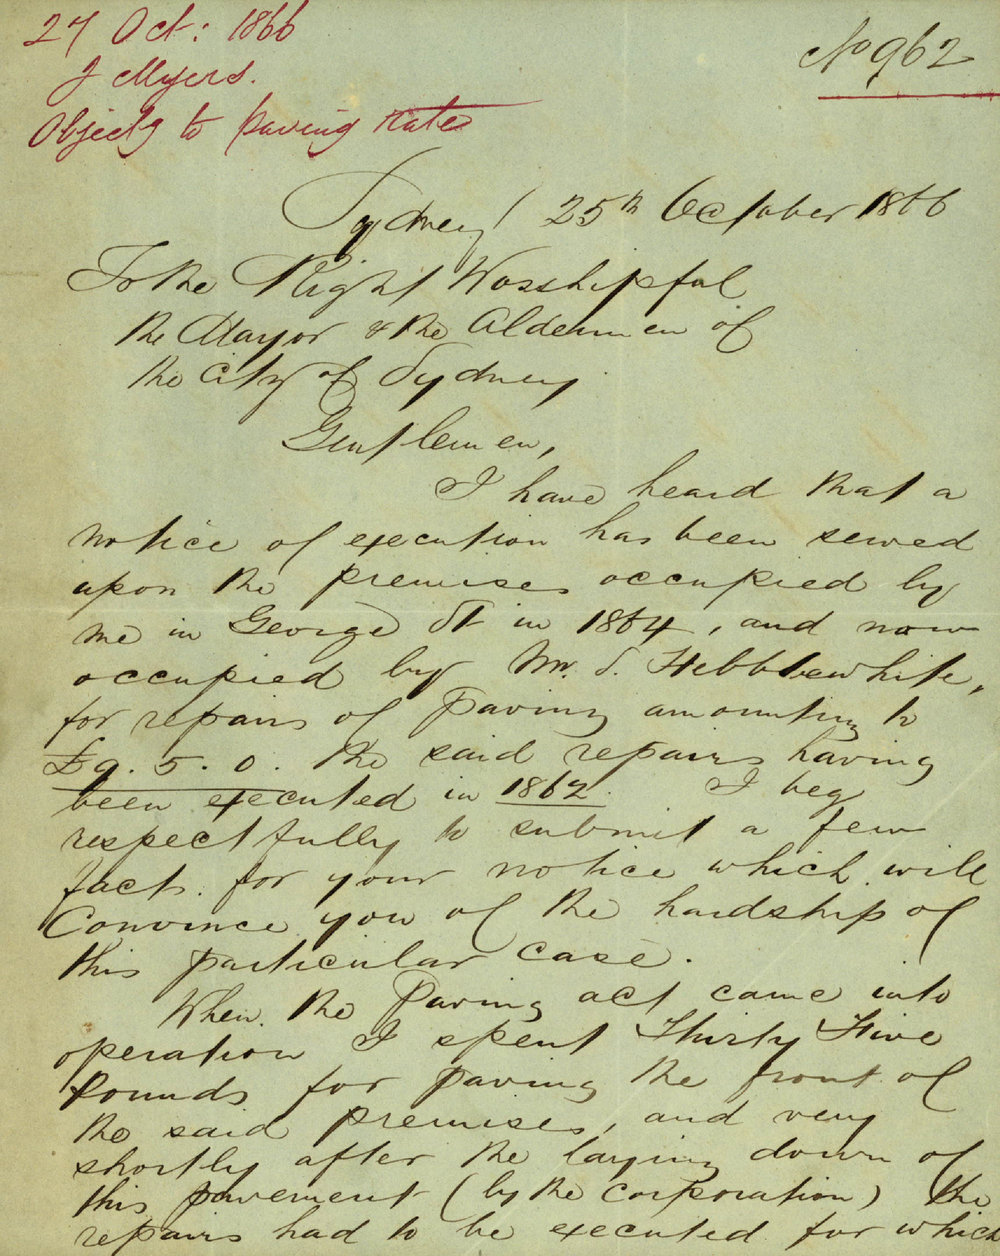 27 Oct: 1866
J Myers.
Objectg to paving rate
No 962
Sydney 25th October 1866
To the Right Worshipful
the Mayor & the Aldermen of
the City of Sydney.
Gentlemen,
I have heard that a
notice of execution has been served
upon the premises occupied by
me in George St in 1864, and now
occupied by Mr. S. Hebblewhite,
for repairs of paving amounting to
£9. 5. 0. the said repairs having
been executed in 1862. I beg
respectfully to submit a few
facts for your notice which will
Convince you of the hardship of
this particular case.
When the Paving act came into
operation I spent Thirty Five
Pounds for paving the front of
the said premises, and very
shortly after the laying down of
this pavement (by the Corporation) the
repairs had to be executed for which